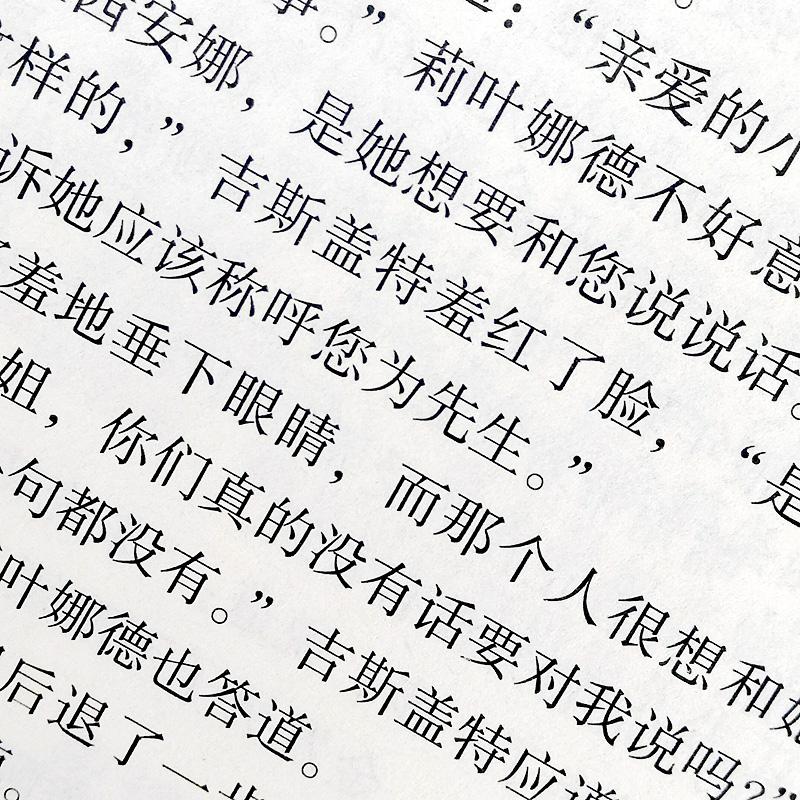 ：“亲爱的小
。” 莉叶娜德不好意
西安娜，是她想要和您说说话。
样的，” 吉斯盖特羞红了脸，“是
诉她应该称呼您为先生。”
羞地垂下眼睛，而那个人很想和她
姐，你们真的没有话要对我说吗？”
句都没有。” 吉斯盖特应道
叶娜德也答道。
后退了一步